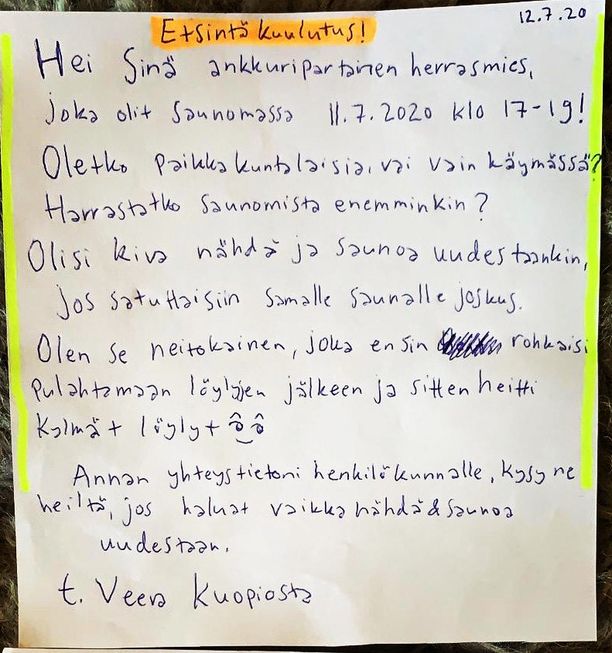 12.7.20
Etsintäkuulutus!
Hei Sinä ankkuripartainen herrasmies,
joka olit saunomassa 11.7.2020 klo 17-19!
Oletko paikkakuntalaisia, vai vain käymässä?
Harrastatko saunomista enemminkin?
Olisi kiva nähdä ja saunoa uudestaankin,
jos satuttaisiin samalle saunalle joskus.
Olen se neitokainen, joka ensin rohkaisi
pulahtamaan löylyjen jälkeen ja sitten heitti
kylmät löylyt
Annan yhteystietoni henkilökunnalle, kysy ne
heiltä, jos haluat vaikka nähdä & saunoa
uudestaan.
t. Veera Kuopiosta